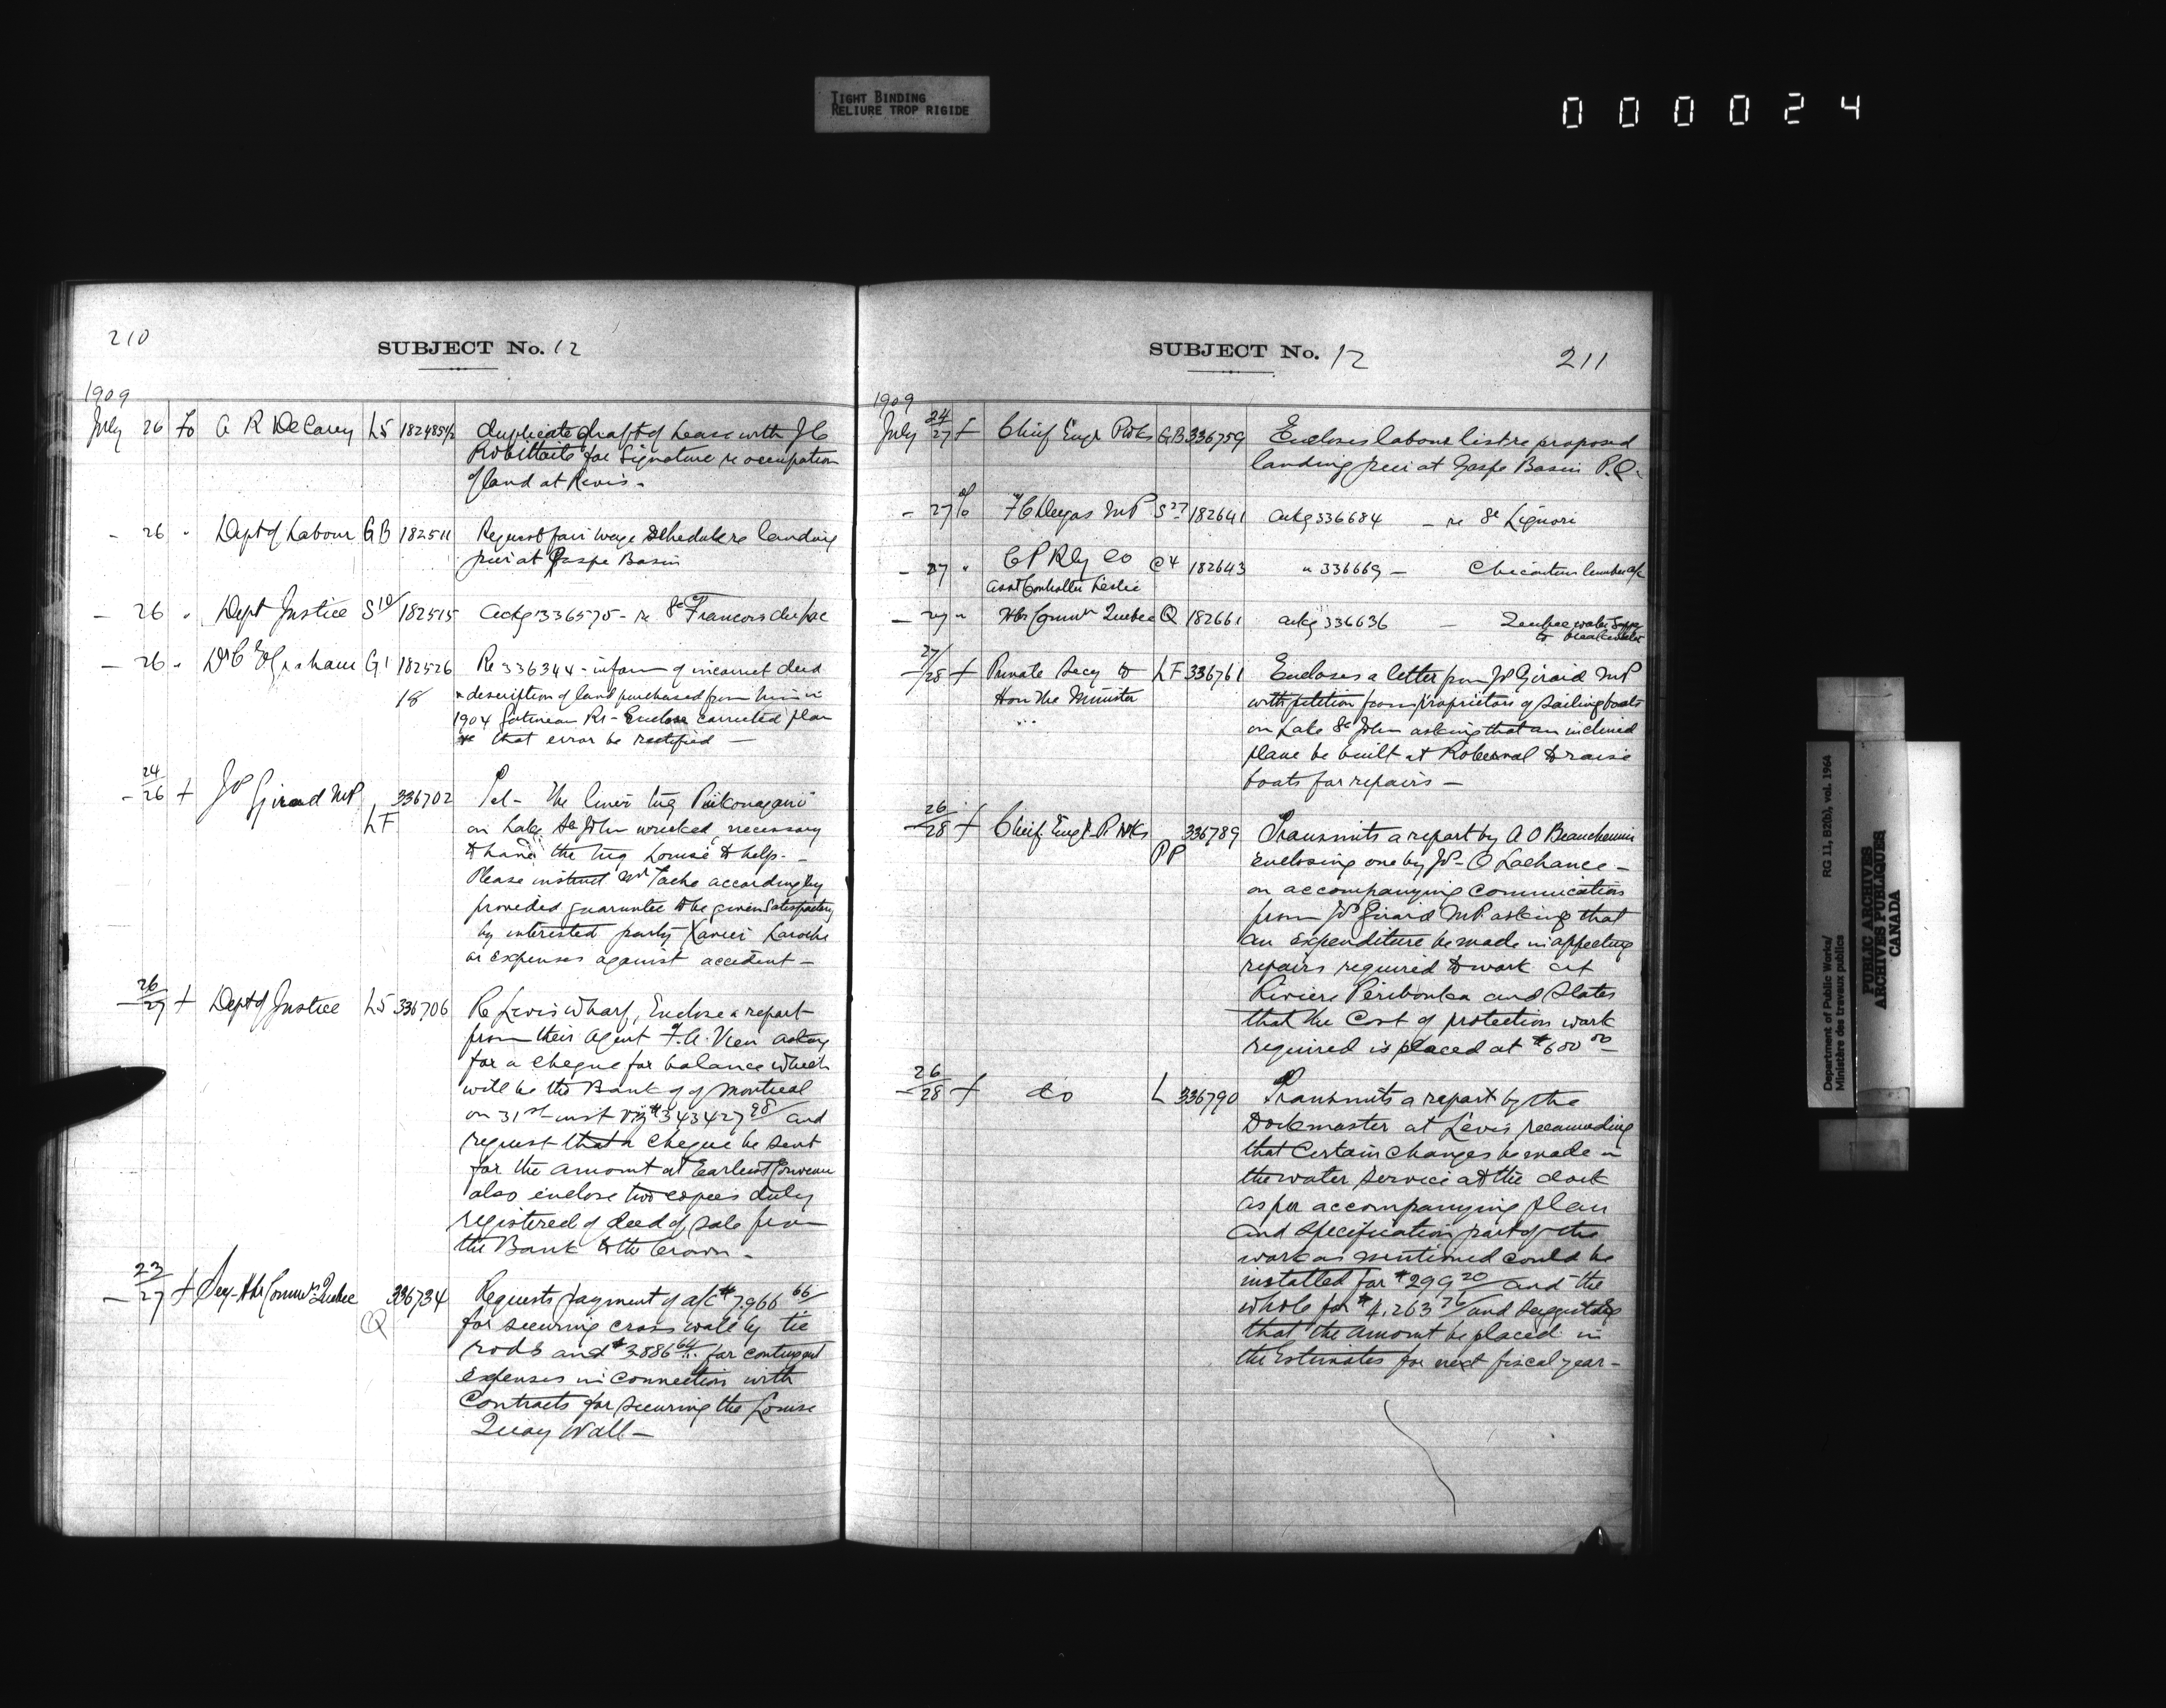 TIGHT BINDING
RELIURE TROP RIGIDE
000024
210
SUBJECT No. 12
1909
July 26 To A R DeCarey L5 182485½ duplicate draft of Lease with J C
Robittaile for Signature re occupation
of land at Levis -
- 26 " Dept of Labour GB 182511 Request fair wage schedule re landing
pier at Gaspe Basin
- 26 " Dept Justice S10/ 182515 Ackg 336575 - re St Francois
- 26 " Graham G1 182526 Re 336344 - inform of incorrect deed
18 description of land purchased from him in
1904 Gatineau Rr - Enclose corrected plan
that error be rectified -
24/26 + JP Girard MP LF 336702 Tel - The liner tug
on Lake St John wrecked, necessary
to have the tug Louise to help. -
Please instruct Mr Tache accordingly
provided guarantee to be given satisfactory
by interested party Xavier Laroche
or expenses against accident -
26/27 + Dept of Justice L5 336706 Re Levis Wharf, Enclose a report
from their agent F. A. Vien asking
for a cheque for balance which
will be the Bank of of Montreal
on 31st inst viz $343427 98/ and
request that a cheque be sent
for the amount at Earliest
also enclose two copies duly
registered of deed of sale from
the Bank to the Crown -
23/27 + Secy Hbr Commrs Quebec Q 336734 Requests payment of a/c $7,966 66/
for securing cross wall by tie
rods and $3886 64/ for contingent
expenses in connection with
Contracts for securing the Louise
Quay Wall -
SUBJECT No. 12
211
1909
July 24/27 + Chief Engr P Wks GB 336759 Encloses labour list re proposed
landing pier at Gaspe Basin P.Q.
- 27 To MP S27 182641 ackg 336684 - re St Liguori
- 27 " C P Rly Co C4 182643 " 336669 - Chicoutimi lumber a/c
Asst Controller Leslie
- 27 " Hbr Commrs Quebec Q 182661 ackg 336636 - Quebec water supp
to breakwater
27/28 + Private Secy to LF 336761 Encloses a letter from JP Girard MP
Hon the Minister with petition from proprietors of sailing boats
on Lake St John asking that an inclined
plane be built at Roberval to raise
boats for repairs -
26/28 + Chief Engr P Wks PP 336789 Transmits a report by A O Beauchemin
enclosing one by JP - O Lachance -
on accompanying communication
from JP Girard MP asking that
an expenditure be made in affecting
repairs required to work at
Riviere Peribonka and States
that the Cost of protection work
required is placed at $600 00
26/28 + do L 336790 Transmits a report by the
Dockmaster at Levis recommending
that Certain Changes be made in
the water service at the dock
as per accompanying plan
and specification part of the
work as mentioned could be
installed for $299 20/ and the
whole for $4,263 76/ and suggesting
that the amount be placed in
the Estimates for next fiscal year -
Department of Public Works/
Ministère des travaux publics
RG 11, B2(b), vol. 1964
PUBLIC ARCHIVES
ARCHIVES PUBLIQUES
CANADA